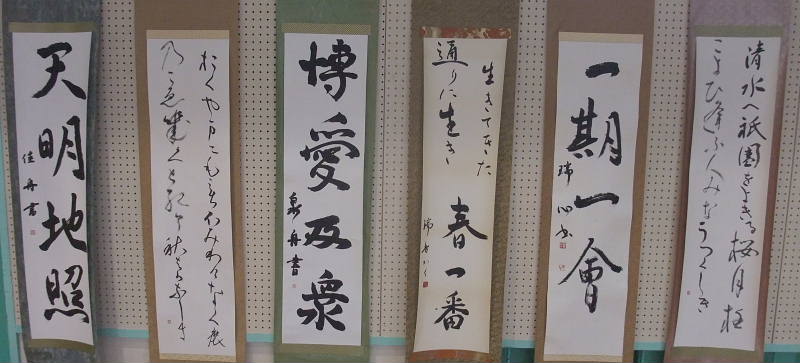 清水へ祇園をよぎる桜月夜
こよひ逢ふ人みなうつくしき
一期一會
生きてきた
通りに生き
春一番
博愛及衆
泉舟書
おくやまにもみちふみわけなく鹿
乃こゑきくときぞ秋はかなしき
天明地照
佳舟書